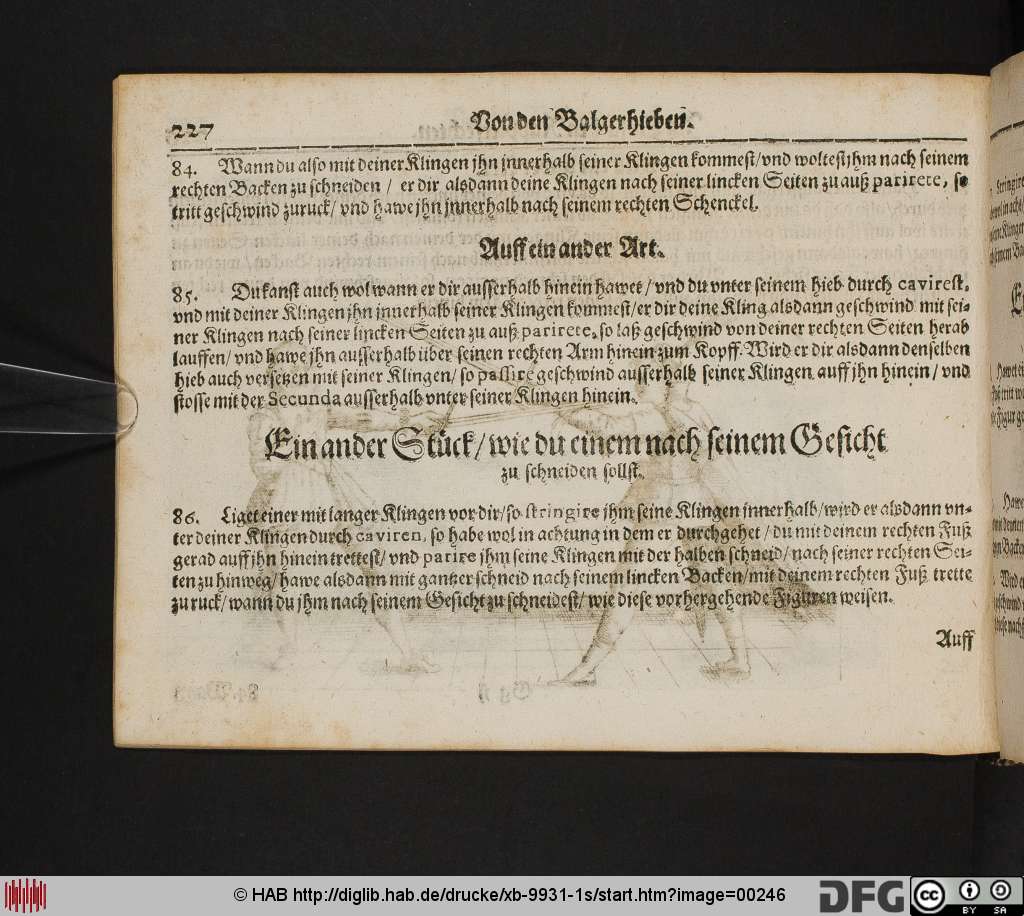 227
Von den Balgerhieben.
84. Wann du also mit deiner Klingen jhn jnnerhalb seiner Klingen kommest/ vnd woltest jhm nach seinem
rechten Backen zu schneiden / er dir alsdann deine Klingen nach seiner lincken Seiten zu auß parirete, so
tritt geschwind zuruck/ vnd hawe jhn jnnerhalb nach seinem rechten Schenckel.
Auff ein ander Art.
85. Du kanst auch wol wann er dir ausserhalb hinein hawet/ vnd du vnter seinem hieb durch cavirest,
vnd mit deiner Klingen jhn jnnerhalb seiner Klingen kommest/ er dir deine Kling alsdann geschwind mit sei-
ner Klingen nach seiner lincken Seiten zu auß parirete, so laß geschwind von deiner rechten Seiten herab
lauffen/ vnd hawe jhn ausserhalb über seinen rechten Arm hinein zum Kopff. Wird er dir alsdann denselben
hieb auch versetzen mit seiner Klingen/ so passire geschwind ausserhalb seiner Klingen auff jhn hinein/ vnd
stosse mit der Secunda ausserhalb vnter seiner Klingen hinein.
Ein ander Stück/ wie du einem nach seinem Gesicht
zu schneiden sollst.
86. Liget einer mit langer Klingen vor dir/ so stringire jhm seine Klingen jnnerhalb/ wird er alsdann vn-
ter deiner Klingen durch caviren, so habe wol in achtung in dem er durchgehet/ du mit deinem rechten Fuß
gerad auff jhn hinein trettest/ vnd parire jhm seine Klingen mit der halben schneid/ nach seiner rechten Sei-
ten zu hinweg/ hawe alsdann mit gantzer schneid nach seinem lincken Backen/ mit deinem rechten Fuß trette
zu ruck/ wann du jhm nach seinem Gesicht zu schneidest/ wie diese vorhergehende Figuren weisen.
Auff
© HAB http://diglib.hab.de/drucke/xb-9931-1s/start.htm?image=00246
DFG
cc
BY SA